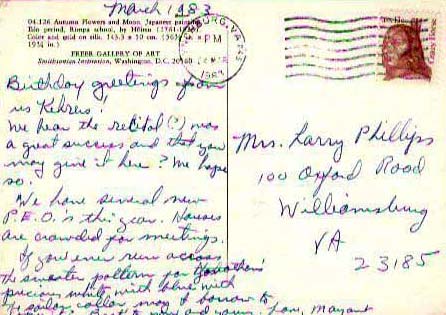 March 1983
04.126 Autumn Flowers and Moon. Japanese painting
Edo period, Rimpa school, by Hōitsu (1761-1828).
Color and gold on silk.
FREER GALLERY OF ART
Smithsonian Institution, Washington, D.C. 20560
PM
1983
Birthday greetings from
us Kehrers!
We hear the recital (?) was
a great success and that you
may give it here? We hope
so.
We have several new
P.E.O.'s this year. Houses
are crowded for meetings.
If you ever run across
the sweater pattern for
precious white with blue with
the sailor collar may I borrow to
Mrs. Larry Phillips
100 Oxford Road
Williamsburg
VA
23185